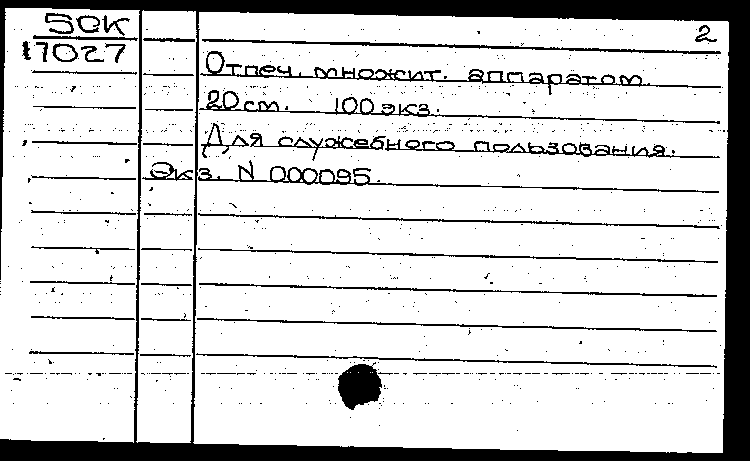 50К 2
17027
Отпеч. множит. аппаратом.
20 см. 100 экз.
Для служебного пользования.
Экз. N 000095.